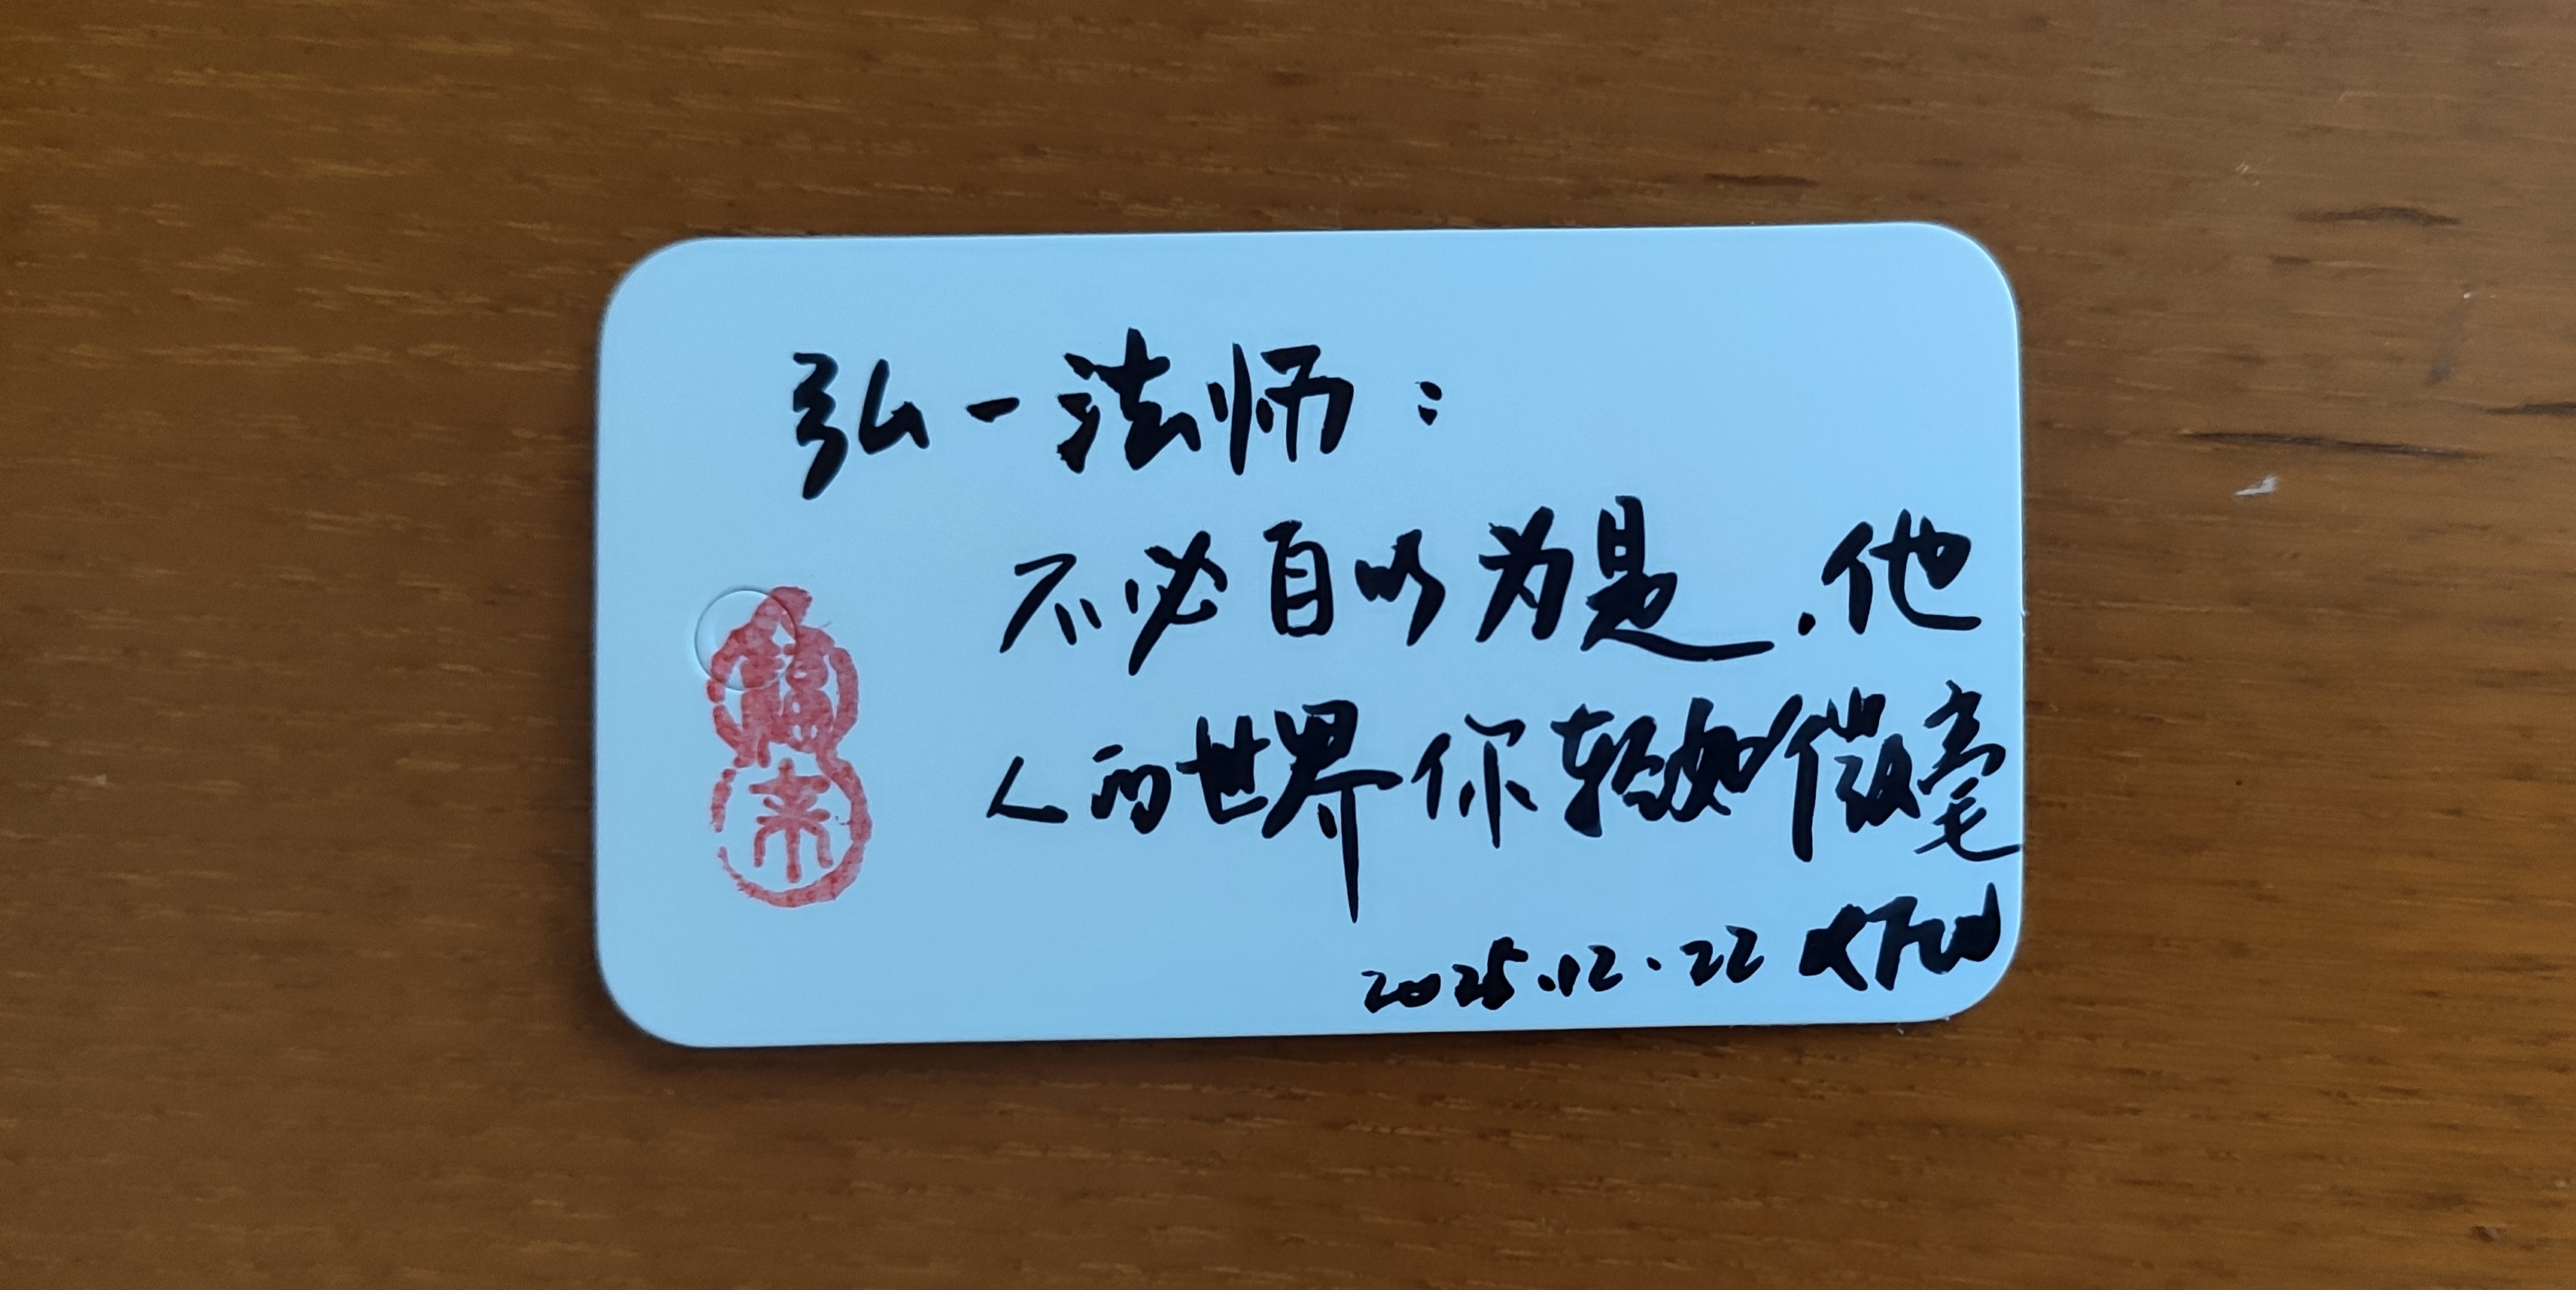 弘一法师：
不必自以为是.他
人的世界你轻如微毫
2025.12.22
福来